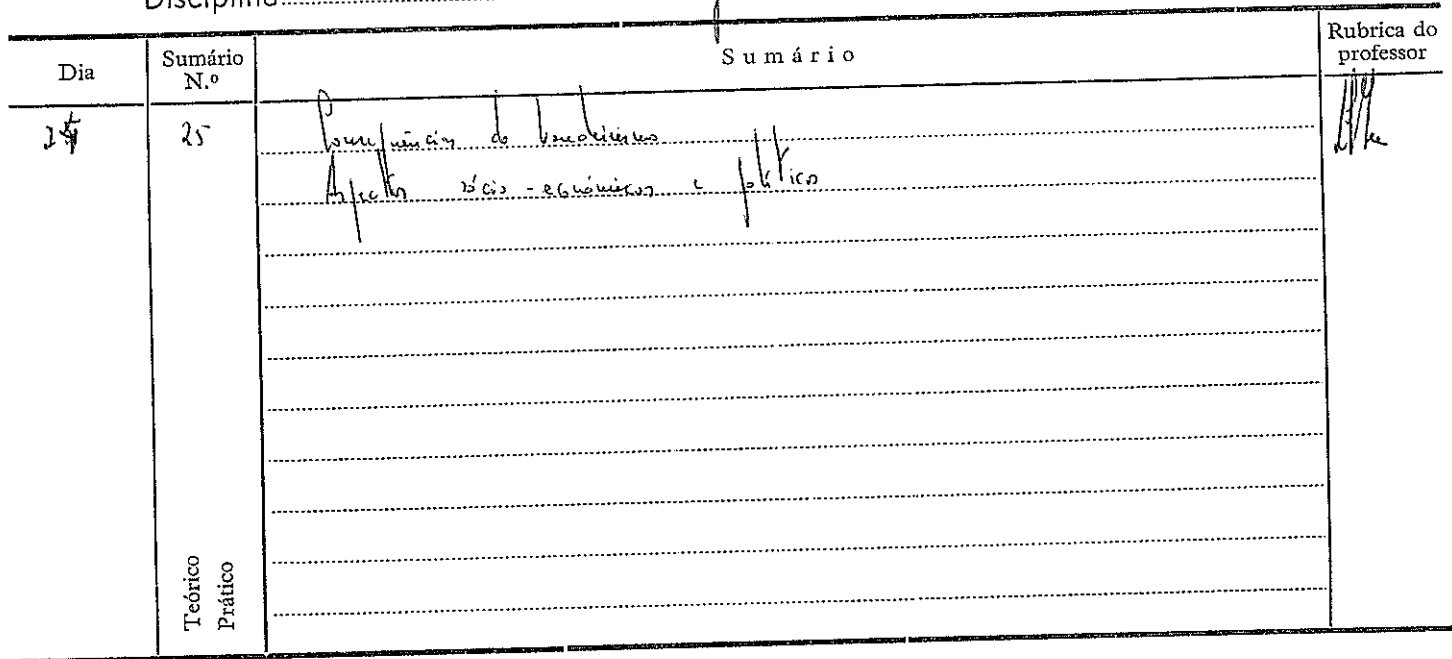 Disciplina
Dia
Sumário N.º
Sumário
Rubrica do professor
25
Consequências do
Aspectos sócio-económicos e políticos
Teórico
Prático